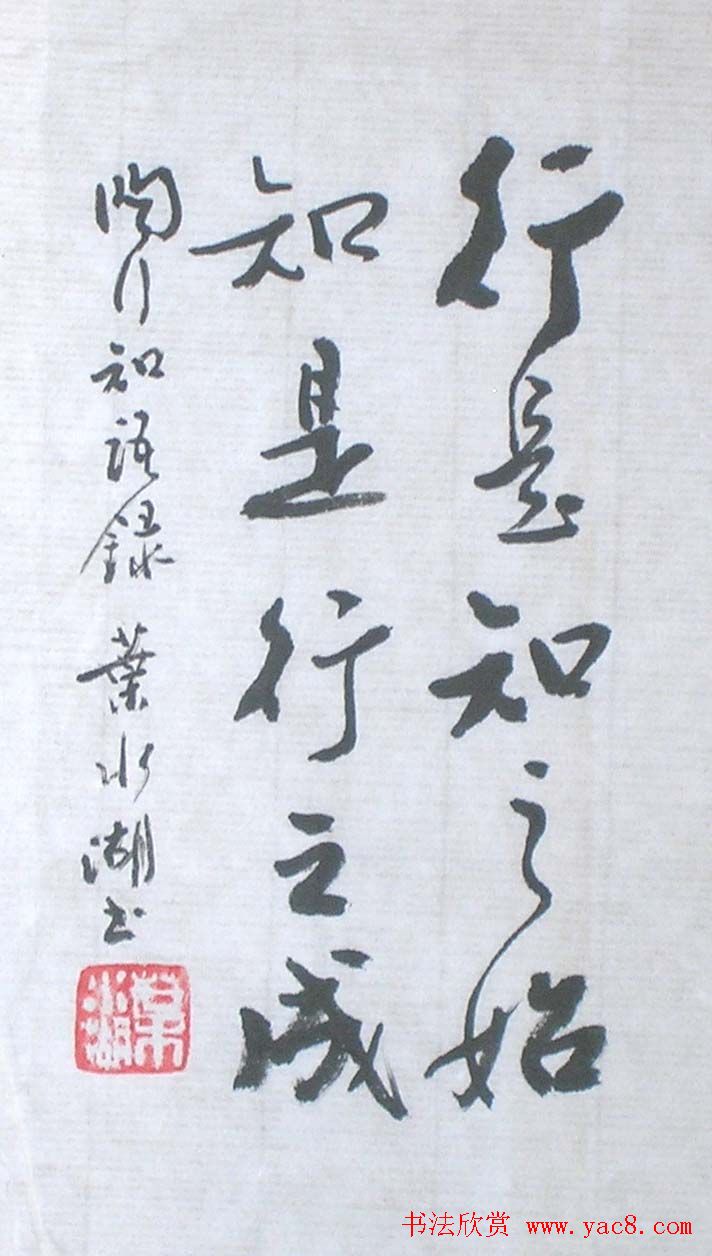 行是知之始
知是行之成
陶行知語錄 葉水湖书
葉水湖
书法欣赏 www.yac8.com